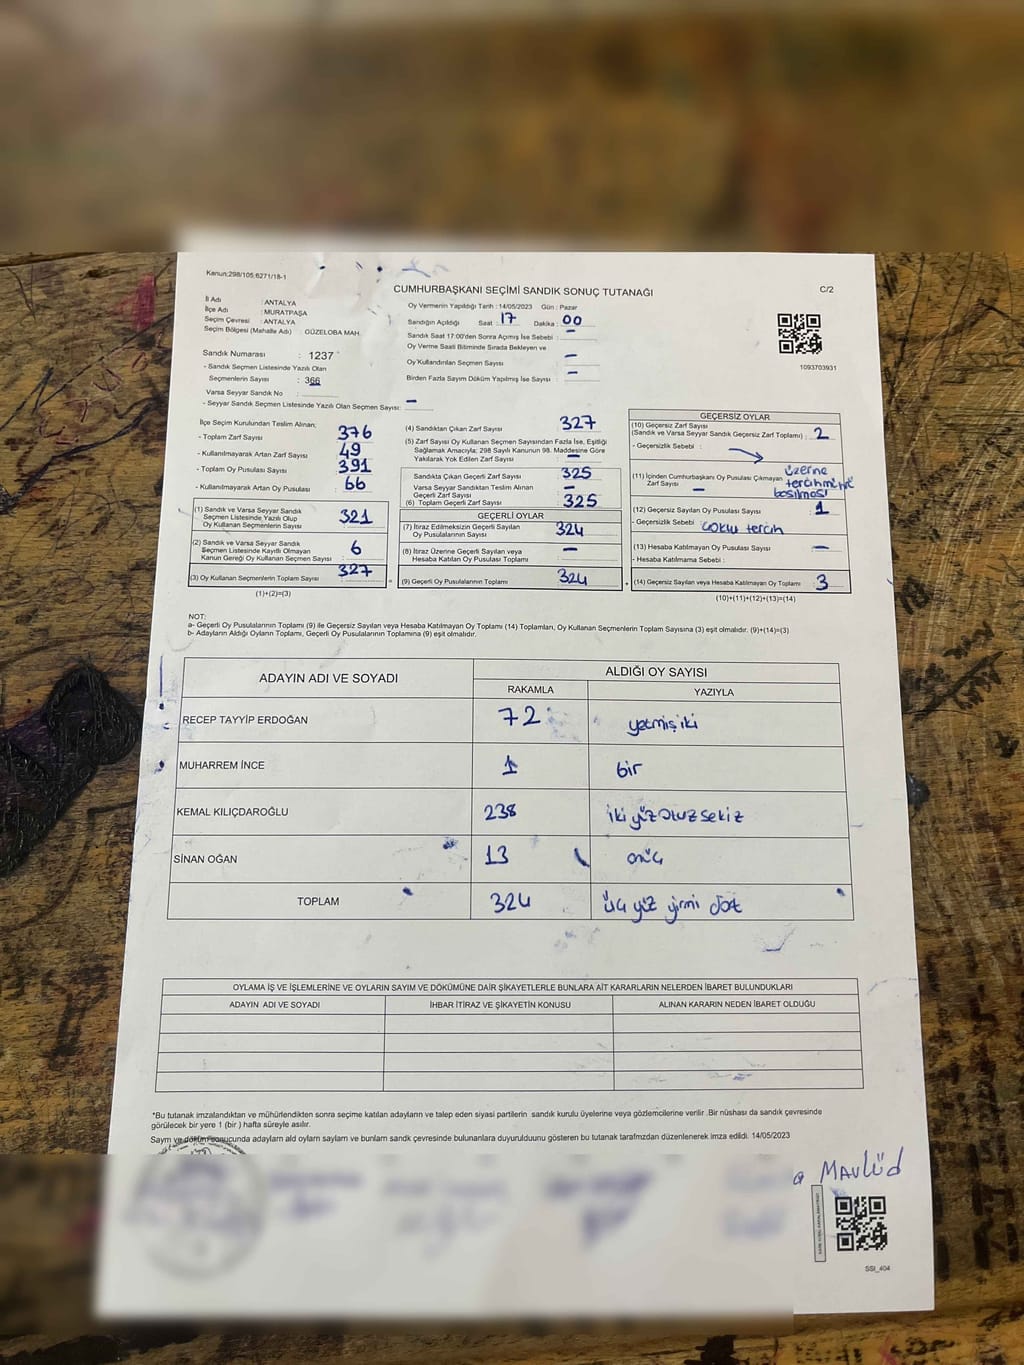 Kanun:298/105;6271/18-1
CUMHURBAŞKANI SEÇİMİ SANDIK SONUÇ TUTANAĞI
C/2
İl Adı : ANTALYA
İlçe Adı : MURATPAŞA
Seçim Çevresi : ANTALYA
Seçim Bölgesi (Mahalle Adı) : GÜZELOBA MAH.
Sandık Numarası : 1237
- Sandık Seçmen Listesinde Yazılı Olan
Seçmenlerin Sayısı : 366
Varsa Seyyar Sandık No
- Seyyar Sandık Seçmen Listesinde Yazılı Olan Seçmen Sayısı: -
Oy Vermenin Yapıldığı Tarih : 14/05/2023 Gün : Pazar
Sandığın Açıldığı Saat : 17 Dakika : 00
Sandık Saat 17:00'den Sonra Açımış İse Sebebi : -
Oy Verme Saati Bitiminde Sırada Bekleyen ve
Oy Kullandırılan Seçmen Sayısı -
Birden Fazla Sayım Döküm Yapılmış İse Sayısı : -
1093703931
İlçe Seçim Kurulundan Teslim Alınan;
- Toplam Zarf Sayısı 376
- Kullanılmayarak Artan Zarf Sayısı 49
- Toplam Oy Pusulası Sayısı 391
- Kullanılmayarak Artan Oy Pusulası 66
(1) Sandık ve Varsa Seyyar Sandık
Seçmen Listesinde Yazılı Olup
Oy Kullanan Seçmenlerin Sayısı 321
(2) Sandık ve Varsa Seyyar Sandık
Seçmen Listesinde Kayıtlı Olmayan
Kanun Gereği Oy Kullanan Seçmen Sayısı 6
(3) Oy Kullanan Seçmenlerin Toplam Sayısı 327
(1)+(2)=(3)
(4) Sandıktan Çıkan Zarf Sayısı 327
(5) Zarf Sayısı Oy Kullanan Seçmen Sayısından Fazla İse, Eşitliği
Sağlamak Amacıyla; 298 Sayılı Kanunun 98. Maddesine Göre
Yakılarak Yok Edilen Zarf Sayısı -
Sandıkta Çıkan Geçerli Zarf Sayısı 325
Varsa Seyyar Sandıktan Teslim Alınan
Geçerli Zarf Sayısı -
(6) Toplam Geçerli Zarf Sayısı 325
GEÇERLİ OYLAR
(7) İtiraz Edilmeksizin Geçerli Sayılan
Oy Pusulalarının Sayısı 324
(8) İtiraz Üzerine Geçerli Sayılan veya
Hesaba Katılan Oy Pusulası Toplamı -
= (9) Geçerli Oy Pusulalarının Toplamı 324
GEÇERSİZ OYLAR
(10) Geçersiz Zarf Sayısı
(Sandık ve Varsa Seyyar Sandık Geçersiz Zarf Toplamı) : 2
- Geçersizlik Sebebi :
üzerine
(11) İçinden Cumhurbaşkanı Oy Pusulası Çıkmayan
Zarf Sayısı -
basılması
(12) Geçersiz Sayılan Oy Pusulası Sayısı 1
- Geçersizlik Sebebi çoklu tercih
(13) Hesaba Katılmayan Oy Pusulası Sayısı -
- Hesaba Katılmama Sebebi :
+ (14) Geçersiz Sayılan veya Hesaba Katılmayan Oy Toplamı 3
(10)+(11)+(12)+(13)=(14)
NOT:
a- Geçerli Oy Pusulalarının Toplamı (9) ile Geçersiz Sayılan veya Hesaba Katılmayan Oy Toplamı (14) Toplamları, Oy Kullanan Seçmenlerin Toplam Sayısına (3) eşit olmalıdır. (9)+(14)=(3)
b- Adayların Aldığı Oyların Toplamı, Geçerli Oy Pusulalarının Toplamına (9) eşit olmalıdır.
ADAYIN ADI VE SOYADI
ALDIĞI OY SAYISI
RAKAMLA YAZIYLA
RECEP TAYYİP ERDOĞAN 72 yetmiş iki
MUHARREM İNCE 1 bir
KEMAL KILIÇDAROĞLU 238 iki yüz otuz sekiz
SİNAN OĞAN 13 onüç
TOPLAM 324 üç yüz yirmi dört
OYLAMA İŞ VE İŞLEMLERİNE VE OYLARIN SAYIM VE DÖKÜMÜNE DAİR ŞİKAYETLERLE BUNLARA AİT KARARLARIN NELERDEN İBARET BULUNDUKLARI
ADAYIN ADI VE SOYADI İHBAR İTİRAZ VE ŞİKAYETİN KONUSU ALINAN KARARIN NEDEN İBARET OLDUĞU
*Bu tutanak imzalandıktan ve mühürlendikten sonra seçime katılan adayların ve talep eden siyasi partilerin sandık kurulu üyelerine veya gözlemcilerine verilir .Bir nüshası da sandık çevresinde
görülecek bir yere 1 (bir ) hafta süreyle asılır.
Sayım ve döküm sonucunda adayların ald oyların sayların ve bunların sandk çevresinde bulunanlara duyurulduunu gösteren bu tutanak tarafmzdan düzenlenerek imza edildi. 14/05/2023
Mavlüd
SSI_404